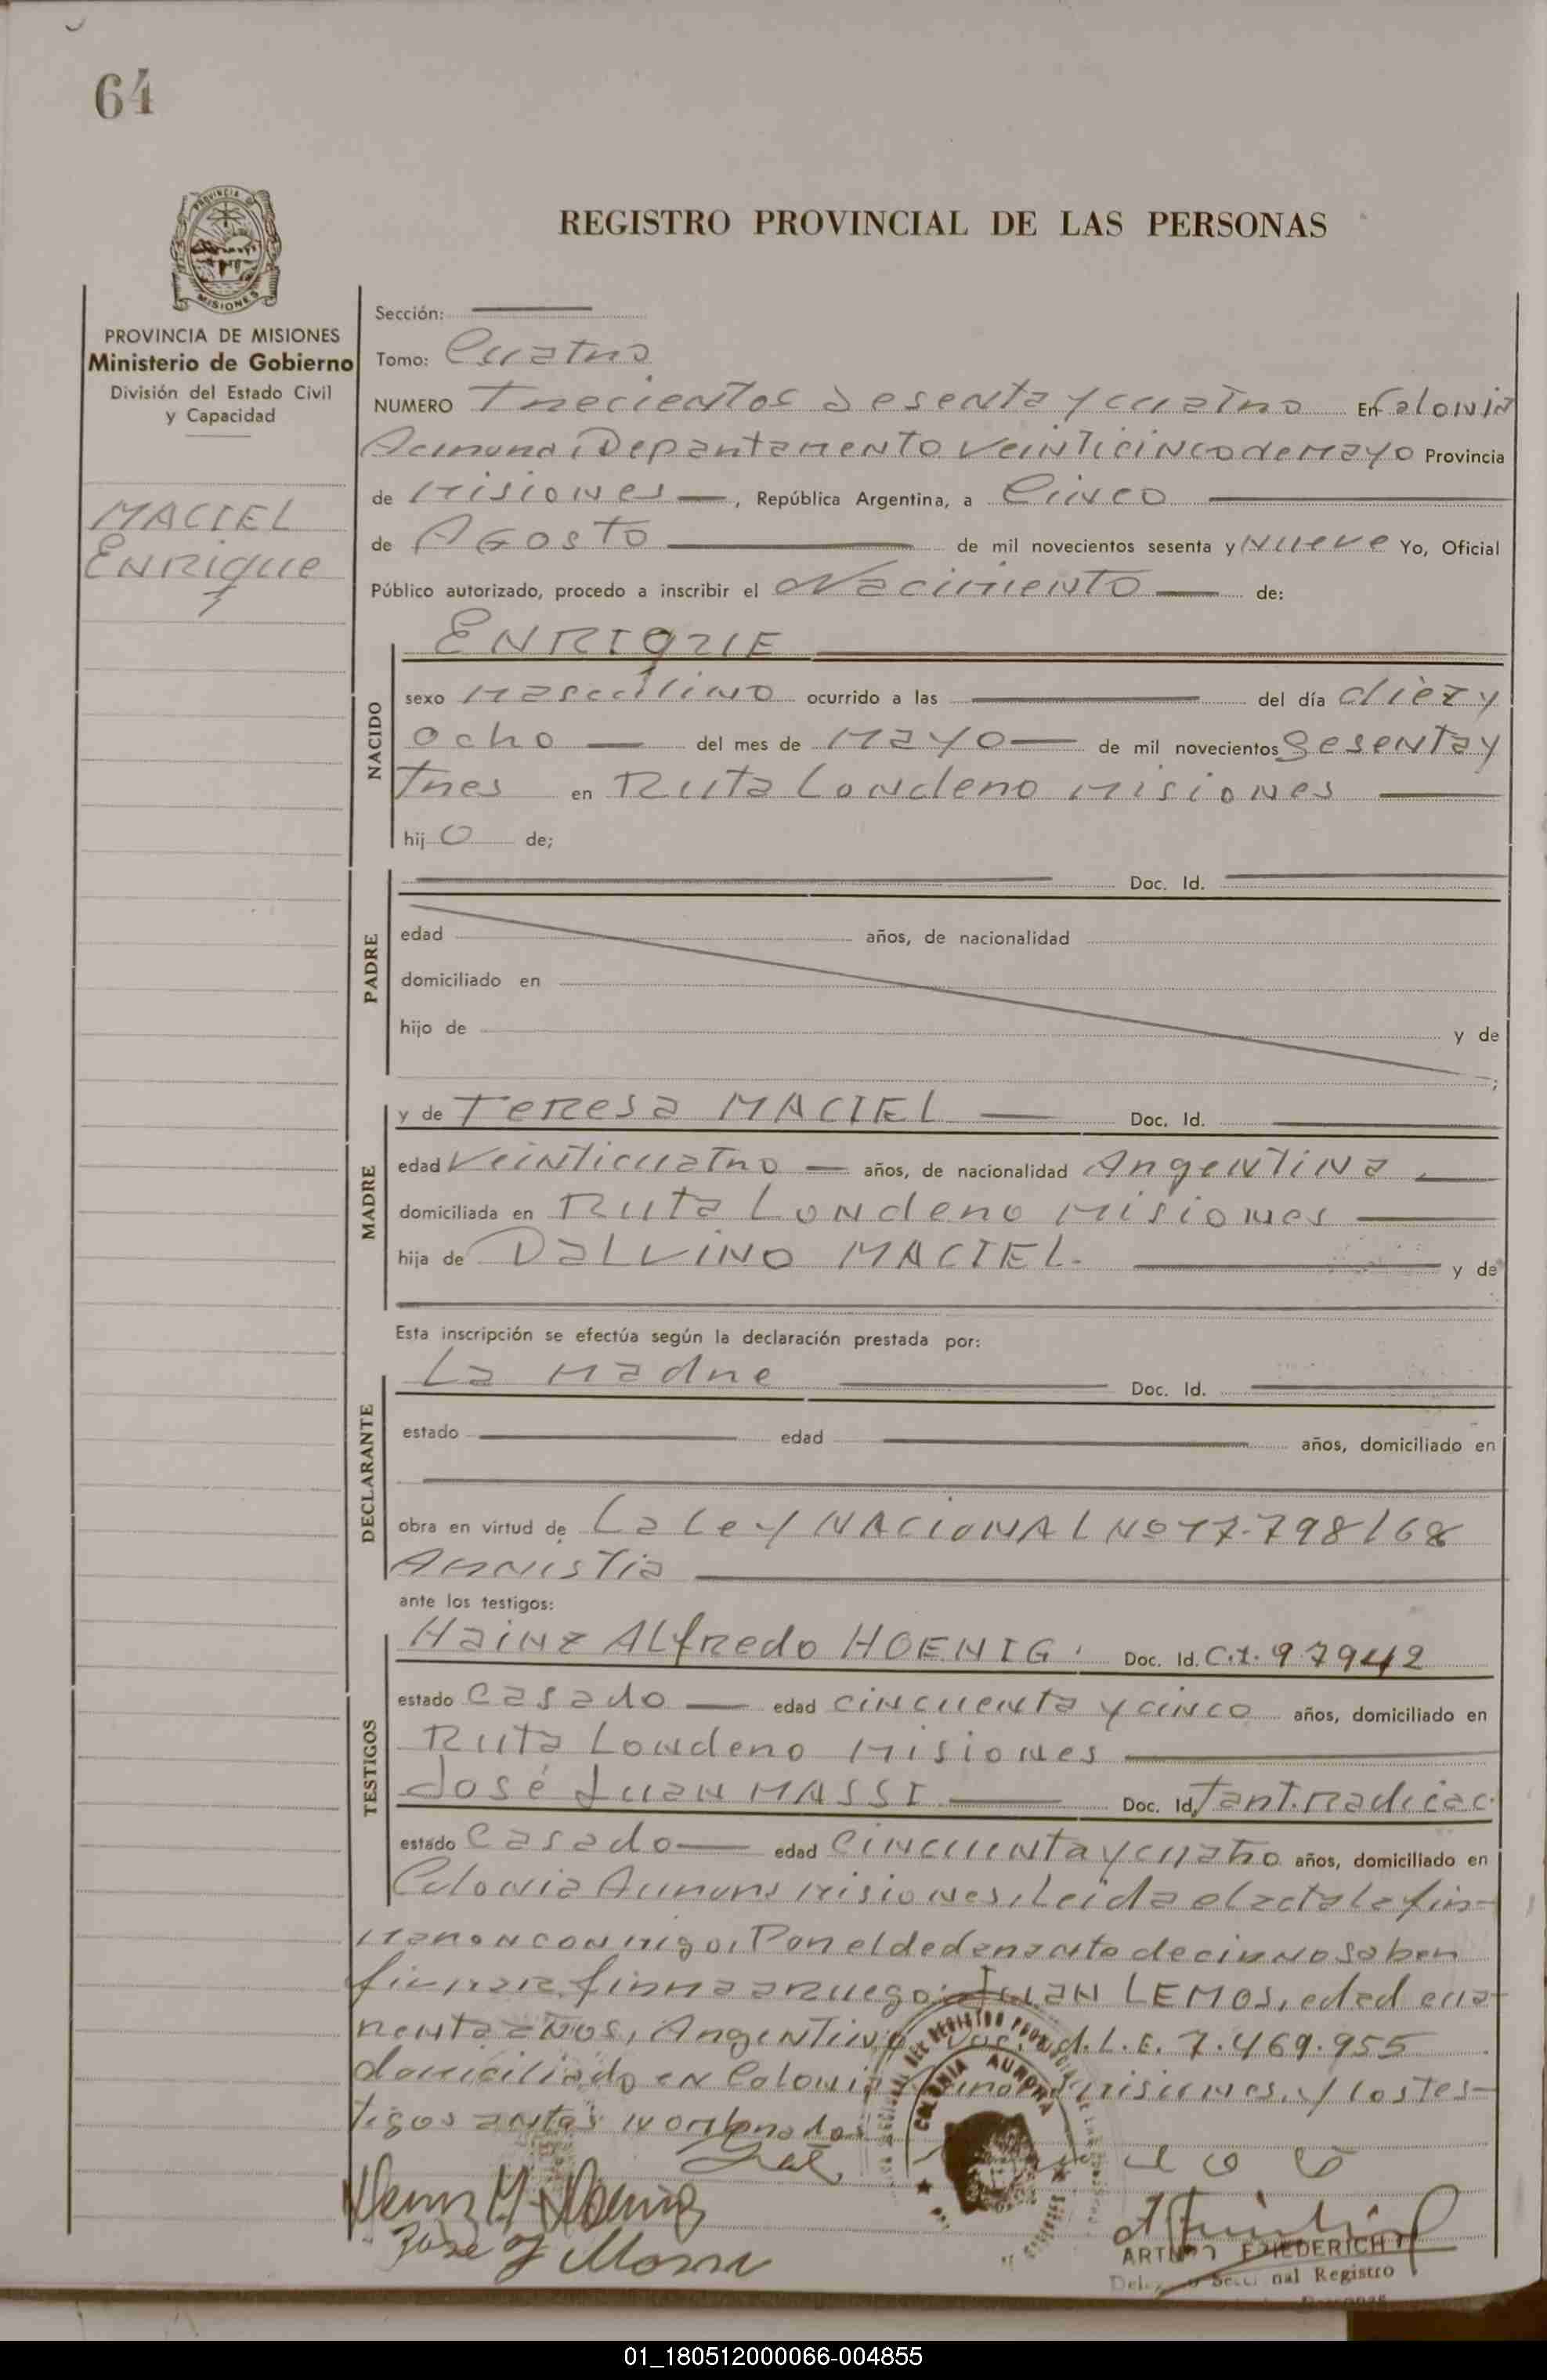 64
PROVINCIA DE
MISIONES
REGISTRO PROVINCIAL DE LAS PERSONAS
PROVINCIA DE MISIONES
Ministerio de Gobierno
División del Estado Civil
y Capacidad
MACIEL
ENRIQUE
Sección:
Tomo: Cuatro
NUMERO Trecientos sesenta y cuatro En Colonia
Aurora, Departamento Veinticinco de Mayo Provincia
de Misiones, República Argentina, a Cinco
de AGosto de mil novecientos sesenta y Nueve Yo, Oficial
Público autorizado, procedo a inscribir el Nacimiento de:
NACIDO
ENRIQUE
sexo Masculino ocurrido a las del día diez y
ocho del mes de Mayo de mil novecientos Sesenta y
tres en Ruta Londero Misiones
hijo de;
PADRE
Doc. Id.
edad años, de nacionalidad
domiciliado en
hijo de y de
;
MADRE
y de TeResa MACIEL Doc. Id.
edad Veinticuatro años, de nacionalidad Argentina
domiciliada en Ruta Londero Misiones
hija de DaLviNO MACIEL. y de
Esta inscripción se efectúa según la declaración prestada por:
DECLARANTE
La Madre Doc. Id.
estado edad años, domiciliado en
obra en virtud de La Ley NACIONAL Nº 17.798/68
Amnistia
ante los testigos:
TESTIGOS
Hainz ALfRedo HOENIG. Doc. Id. C.I. 97942
estado Casado edad cincuenta y cinco años, domiciliado en
Ruta Londero Misiones
José Juan MASSI Doc. Id. Tarj. Radicac.
estado Casado edad Cincuenta y cuatro años, domiciliado en
Colonia Aurora Misiones, Leida el acta la fir-
maron conmigo, Por el declarante decir no saber
firmar, firma a Ruego: JuaN LEMOS, edad cua-
renta años, Argentino, Doc. Id. L.E. 7.469.955
domiciliado en Colonia Aurora, Misiones, y los tes-
tigos antes nombrados
COLONIA AURORA
José J Massi
ARTURO FRIEDERICH
Registro
01_180512000066-004855